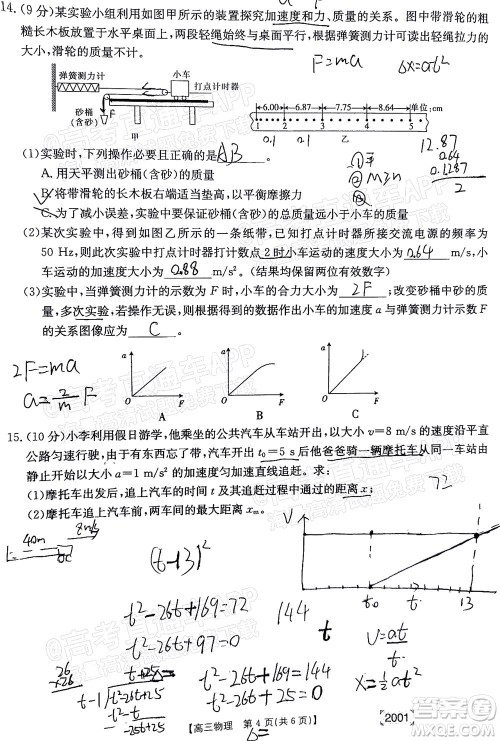 14.(9分)某实验小组利用如图甲所示的装置探究加速度和力、质量的关系。图中带滑轮的长木板放置于水平桌面上,两段轻绳始终与桌面平行,根据弹簧测力计可读出轻绳拉力的大小,滑轮的质量不计。
F=ma
δx=at²
弹簧测力计 小车 打点计时器
砂桶(含砂) F
甲
6.00 6.87 7.75 8.64 单位:cm
1 2 3 4 5
0.1 0.1 乙
(1)实验时,下列操作必要且正确的是 AB 。
A.用天平测出砂桶(含砂)的质量
B.将带滑轮的长木板右端适当垫高,以平衡摩擦力
C.为了减小误差,实验中要保证砂桶(含砂)的总质量远小于小车的质量
①平
②M≥m
12.87
0.64
0.1287
2
(2)某次实验中,得到如图乙所示的一条纸带,已知打点计时器所接交流电源的频率为50 Hz,则此次实验中打点计时器打计数点2时小车运动的速度大小为 0.64 m/s,小车运动的加速度大小为 0.88 m/s²。(结果均保留两位有效数字)
(3)实验中,当弹簧测力计的示数为F时,小车的合力大小为 2F ;改变砂桶中砂的质量,多次实验,若操作正确,则根据实验测得的数据作出小车的加速度a与弹簧测力计示数F的关系图像应为 C 。
2F=ma
a=2/m F
a F A
a F B
a F C
15.(10分)小李利用假日游学,他乘坐的公共汽车从车站开出,以大小v=8 m/s的速度沿平直公路匀速行驶,由于有东西忘了带,汽车开出t₀=5 s后他爸爸骑一辆摩托车从同一车站由静止开始以大小a=1 m/s²的加速度匀加速直线追赶。求:
(1)摩托车出发后,追上汽车的时间t及其追赶过程中通过的距离x;
(2)摩托车追上汽车前,两车间的最大距离xₘ。
72
40m 8m/s
(t-13)²
t²-26t+169=72
t²-26t+97=0
144
t
V
t₀ t 13
v=at
x=½at²
26
t-1 t²-26t+25
-25t+25
t²-26t+169=144
t²-26t+25=0
【高三物理 第4页(共6页)】
2001